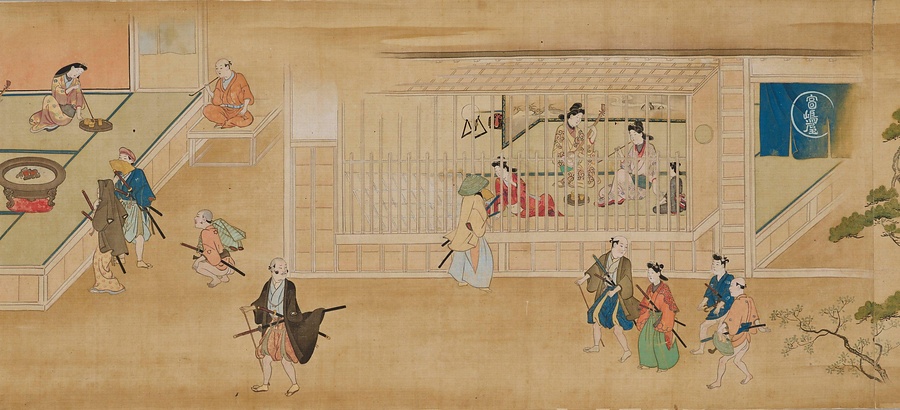 宮嶋屋